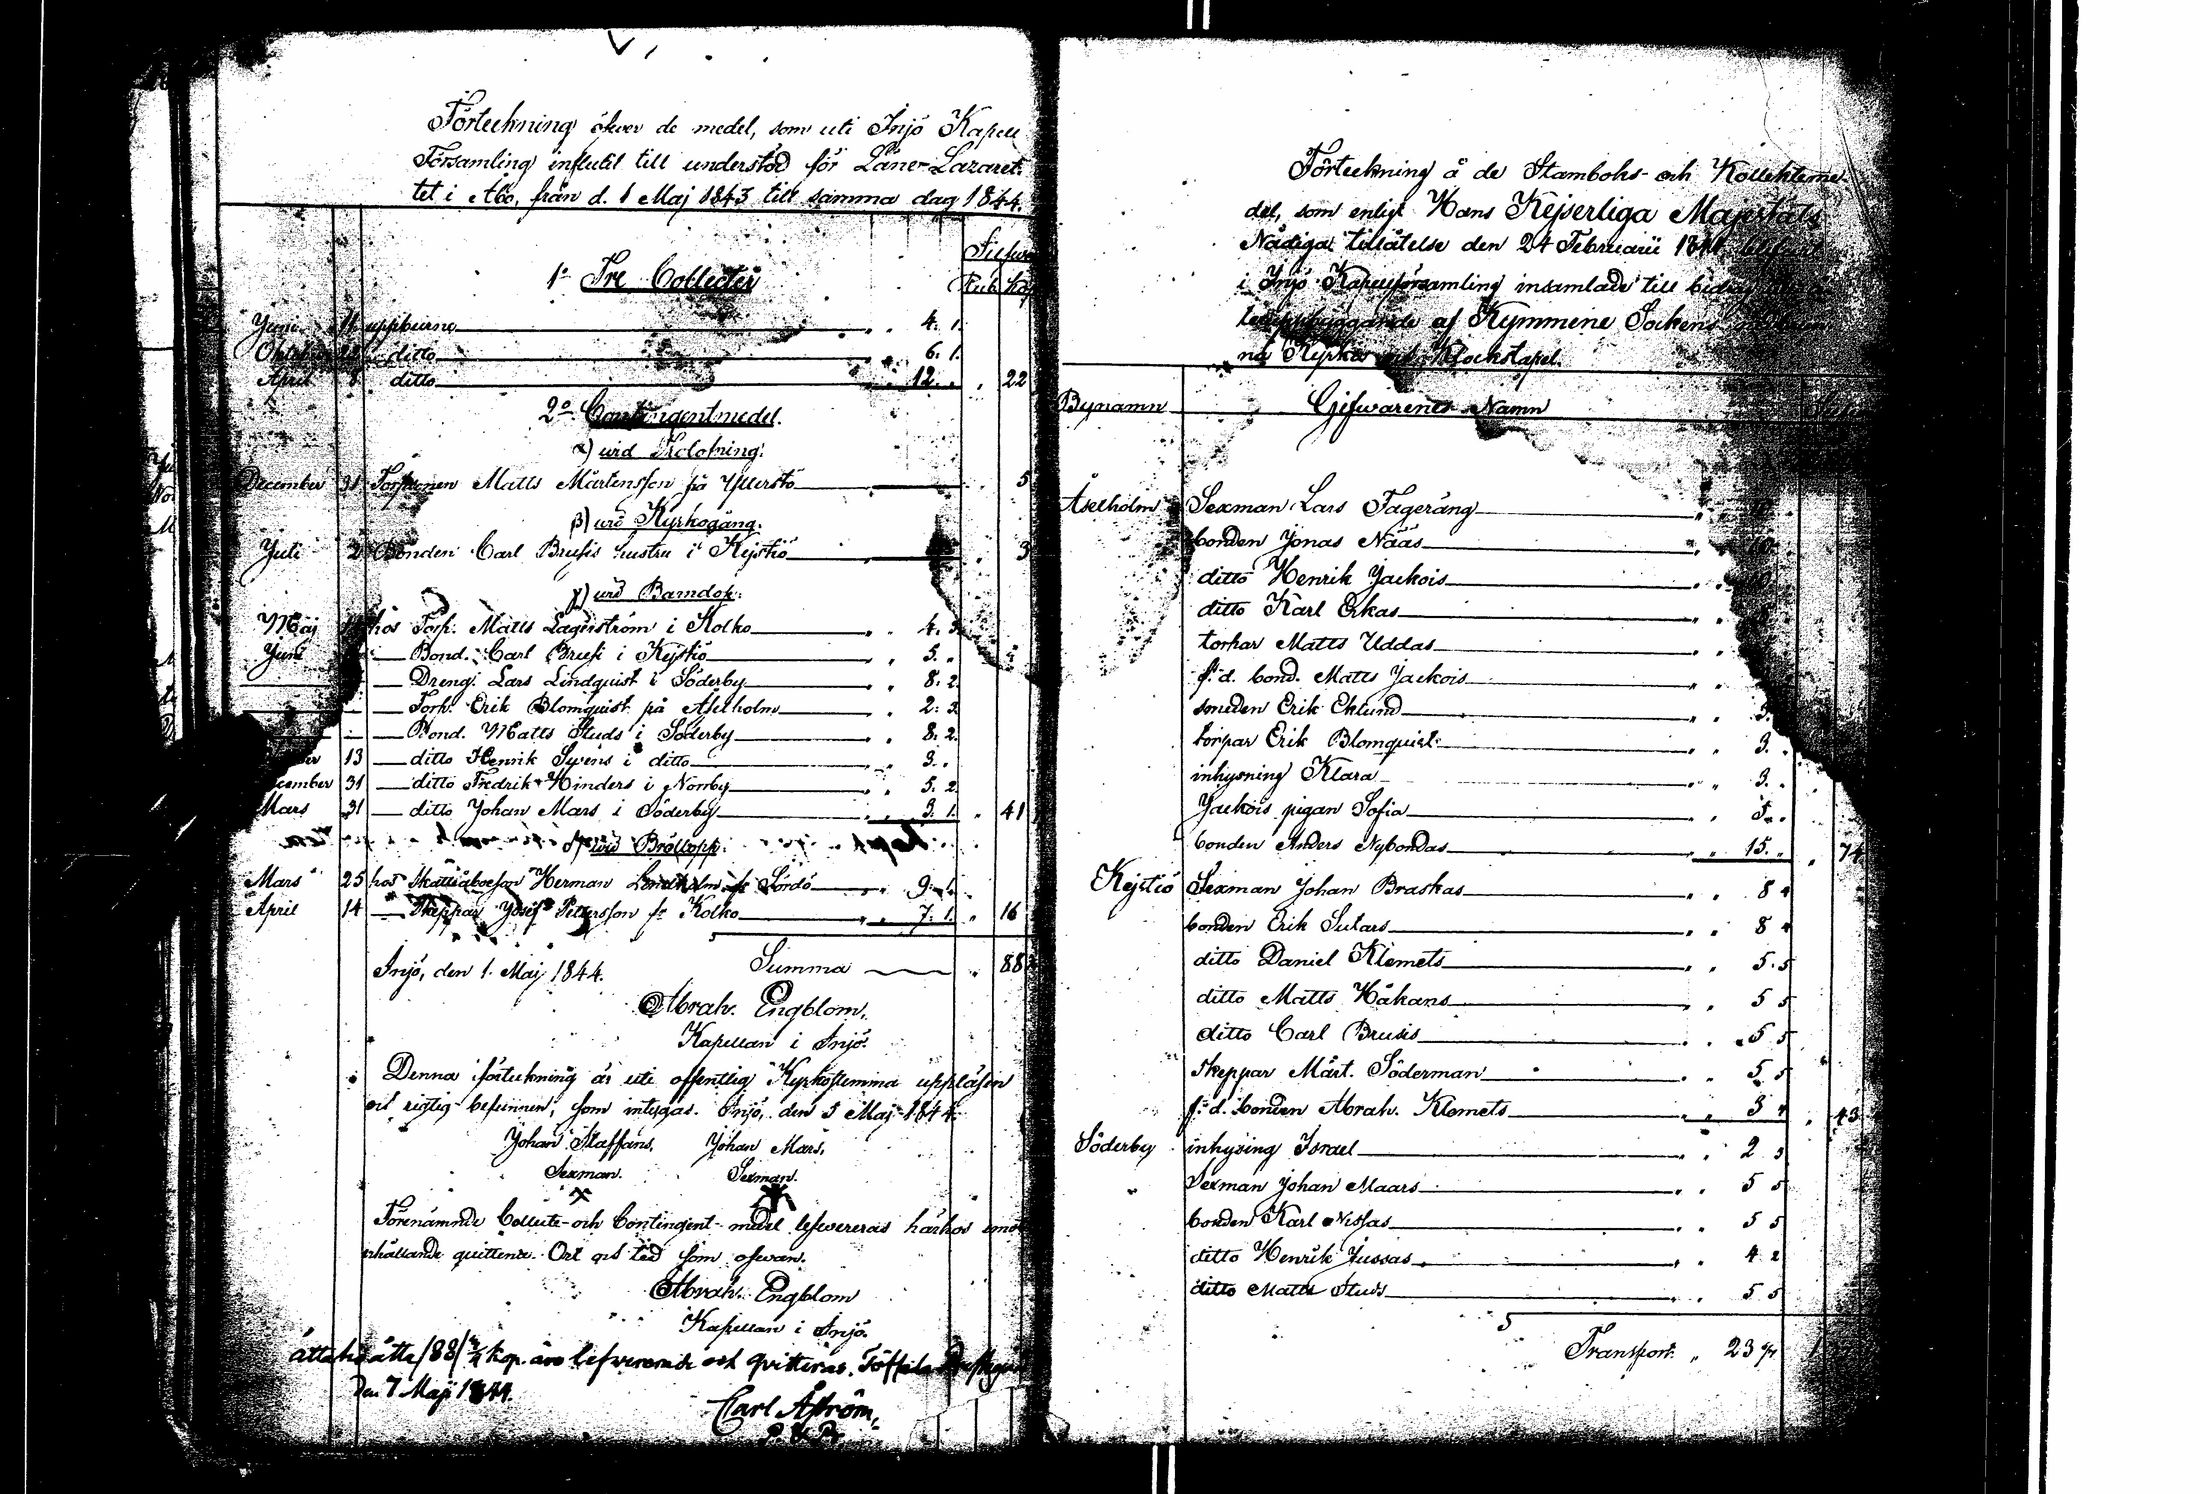 Förteckning öfver de medel, som uti Iniö Kapell
Församling influtit till understöd för Läne-Lazaret-
tet i Åbo, från d. 1 Maj 1843 till samma dag 1844.
Silfver
Rub. Kop
1o Tre Collecter
Juni 11 uppburne 4. 1.
Oktober ditto 6. 1.
April 8 ditto 12. 22
2o Contingentmedel.
α) wid Trolofning.
December 31 Torparen Matts Mårtensson på Yllerstö 5
β) wid Kyrkogång.
Juli 2 Bonden Carl Brusis hustru i Kejstiö 3
γ) wid Barndop.
Maj hos Torp. Matts Lagerström i Kolko 4. 3.
Juni — Bond. Carl Brusi i Kejstiö 5.
— Dreng. Lars Lindquist i Söderby 8. 2.
— Torp. Erik Blomquist på Åselholm 2. 3.
— Bond. Matts Studs i Söderby 8. 2.
13 — ditto Henrik Svens i ditto 3.
December 31 — ditto Fredrik Hinders i Norrby 5. 2.
Mars 31 — ditto Johan Mars i Söderby 3. 1. 41
wid Bröllopp.
Mars 25 hos Herman 9. 1.
April 14 — Skeppar Josef Pettersson fr. Kolko 7. 1. 16
Iniö, den 1. Maj 1844. Summa 88
Abrah. Engblom.
Kapellan i Iniö.
Denna förteckning är uti offentlig Kyrkostemma uppläsen
och rigtig befunnen, som intygas. Iniö, den 5 Maj 1844.
Johan Staffans, Johan Mars,
Sexman. Sexman.
Förenämnde Collecte- och Contingent-medel lefvereras härhos emot
erhållande quittence. Ort och tid som ofvan.
Abrah. Engblom
Kapellan i Iniö.
åttatio åtta /88/ kop. äro lefvererade och qvitteras.
den 7 Maji 1844.
Carl Åström,
Förteckning å de Stambohs- och Kollekteme-
del, som enligt Hans Kejserliga Majestäts
Nådiga tillåtelse den 24 Februarii
i Iniö Kapellförsamling insamlade till
af Kymmene Sockens
na Kyrka och Klockstapel.
Bynamn Gifwarenes Namn
Åselholm Sexman Lars Fageräng 10
bonden Jonas Nääs 10
ditto Henrik Jackois 10
ditto Karl Erkas
torpar Matts Uddas
f. d. bond. Matts Jackois
smeden Erik Eklund 3.
torpar Erik Blomquist 3.
inhysning Klara 3.
Jackois pigan Sofia 5.
bonden Anders Nybondas 15. 74
Kejstiö Sexman Johan Braskas 8
bonden Erik Sutars 8
ditto Daniel Klemets 5. 5
ditto Matts Håkans 5 5
ditto Carl Brusis 5 5
skeppar Mårt. Söderman 5 5
f. d. bonden Abrah. Klemets 3 43
Söderby inhysing Israel 2 3
Sexman Johan Maars 5 5
bonden Karl Nissas 5 5
ditto Henrik Jussas 4 2
ditto Matts Studs 5 5
Transport. 23